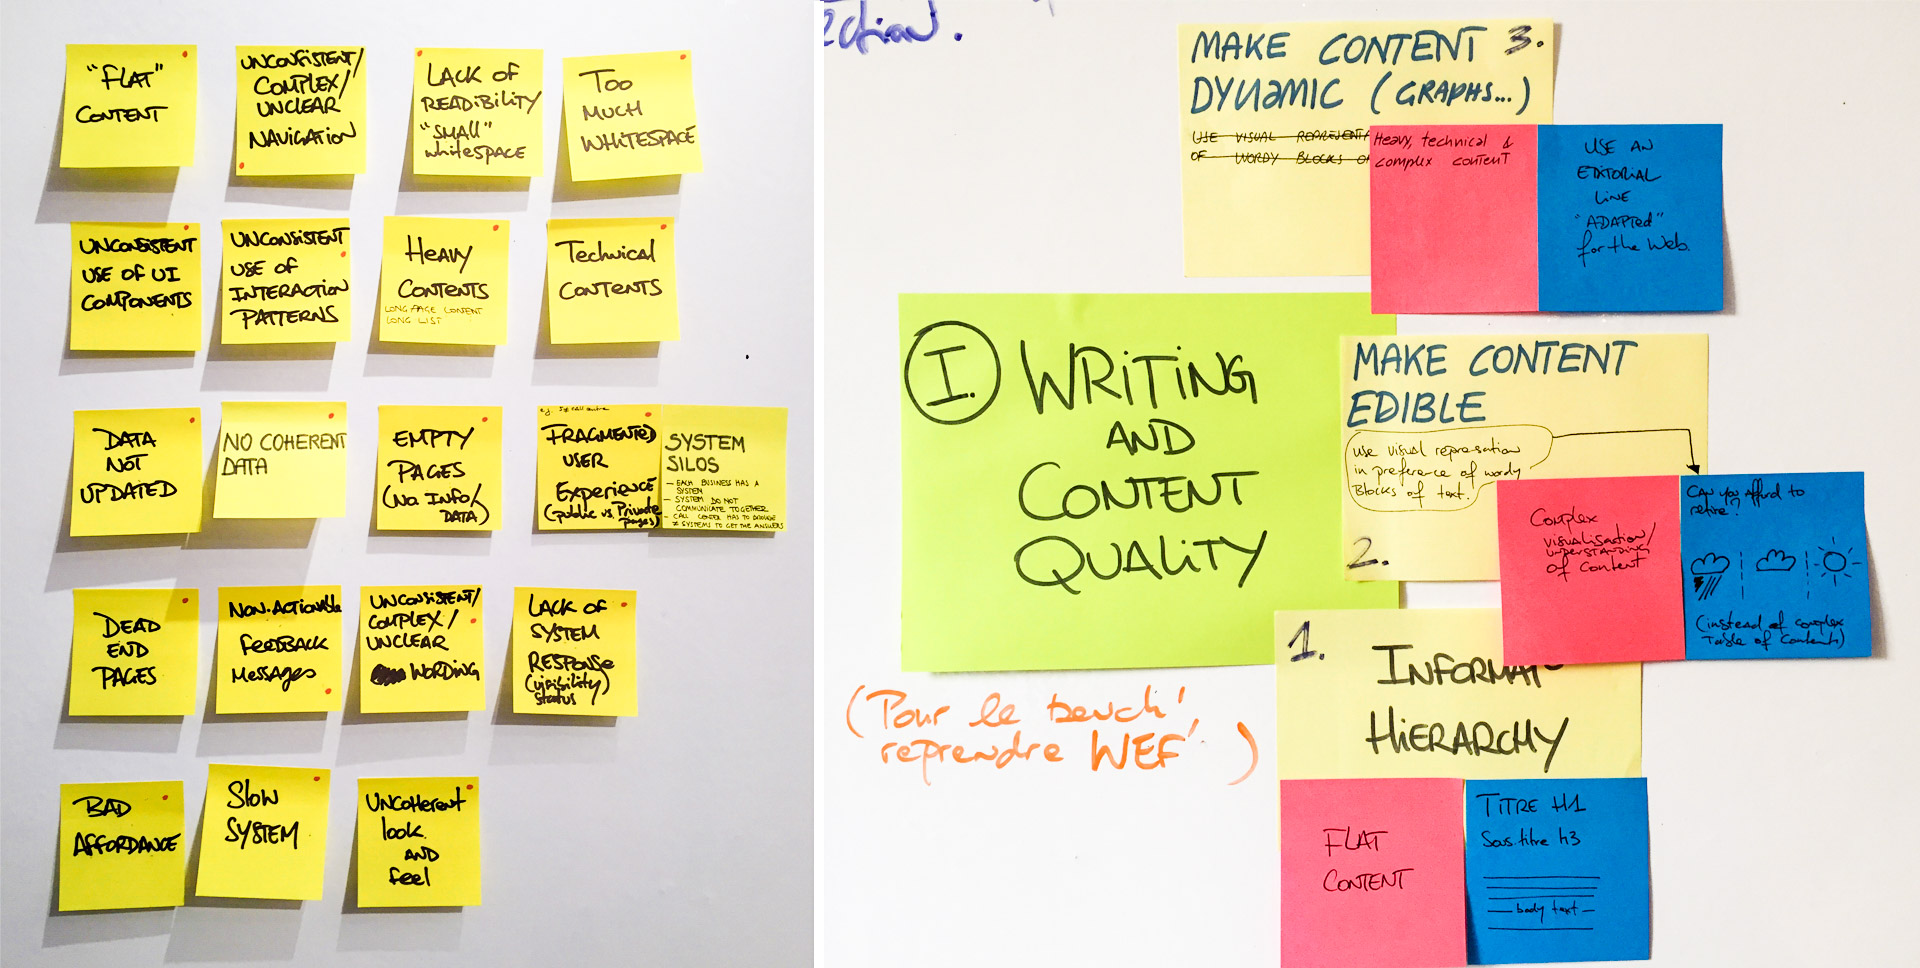 "FLAT"
CONTENT
UNCONSISTENT/
COMPLEX/
UNCLEAR
NAVIGATION
LACK OF
READIBILITY
"SMALL"
whiteSPACE
TOO
MUCH
WHITESPACE
UNCONSISTENT
USE OF UI
COMPONENTS
UNCONSISTENT
USE OF
INTERACTION
PATTERNS
HEAVY
CONTENTS
LONG PAGE CONTENT
LONG LIST
Technical
CONTENTS
DATA
NOT
UPDATED
NO COHERENT
DATA
EMPTY
PAGES
(No INFO/
DATA)
FRAGMENTED
USER
Experience
(public vs Private
pages)
SYSTEM
SILOS
- EACH BUSINESS HAS A
SYSTEM
- SYSTEM DO NOT
COMMUNICATE TOGETHER
- CALL CENTER HAS TO
≠ SYSTEMS TO GET THE ANSWERS
DEAD
END
PAGES
NON-ACTIONABLE
FEEDBACK
Messages
UNCONSISTENT/
COMPLEX/
UNCLEAR
WORDING
LACK OF
SYSTEM
RESPONSE
(visibility)
status
BAD
AFFORDANCE
Slow
SYSTEM
UNCOHERENT
look
AND
feel
ection.
MAKE CONTENT 3.
DYNAMIC (GRAPHS...)
USE VISUAL REPRESENT
OF WORDY BLOCKS OF
Heavy, technical &
complex content
USE AN
EDITORIAL
LINE
"ADAPTED"
for the Web.
I. WRITING
AND
CONTENT
QUALITY
MAKE CONTENT
EDIBLE
use visual represation
in preference of wordy
Blocks of text.
2.
Complex
visualisation/
understanding
of content
CAN you afford to
retire?
(instead of complex
Table of Contents)
1.
INFORMAT
HIERARCHY
(Pour le
reprendre WEF)
FLAT
CONTENT
TITRE H1
Sous titre h3
body text